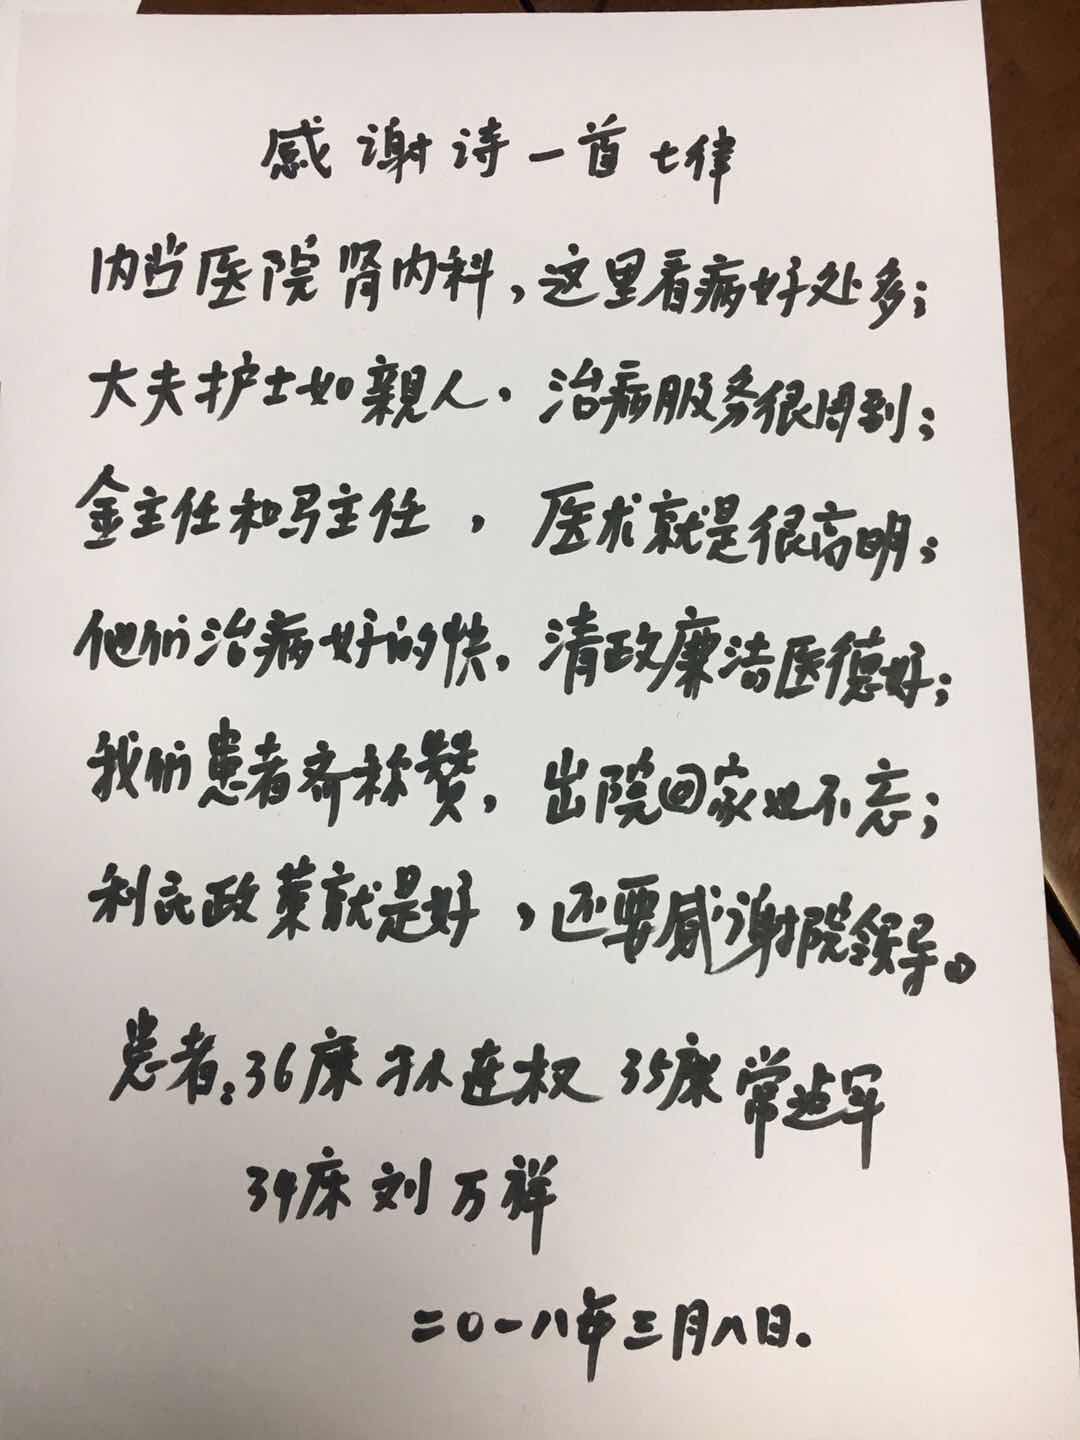 感谢诗一首七律
内当医院肾内科，这里看病好处多；
大夫护士如親人，治病服务很周到；
金主任和马主任，医术就是很高明；
他们治病好的快，清政廉洁医德好；
我们患者齐称赞，出院回家也不忘；
利民政策就是好，还要感谢院领导。
患者：36床 孙连权 35床 常军
34床 刘万祥
二〇一八年三月八日.